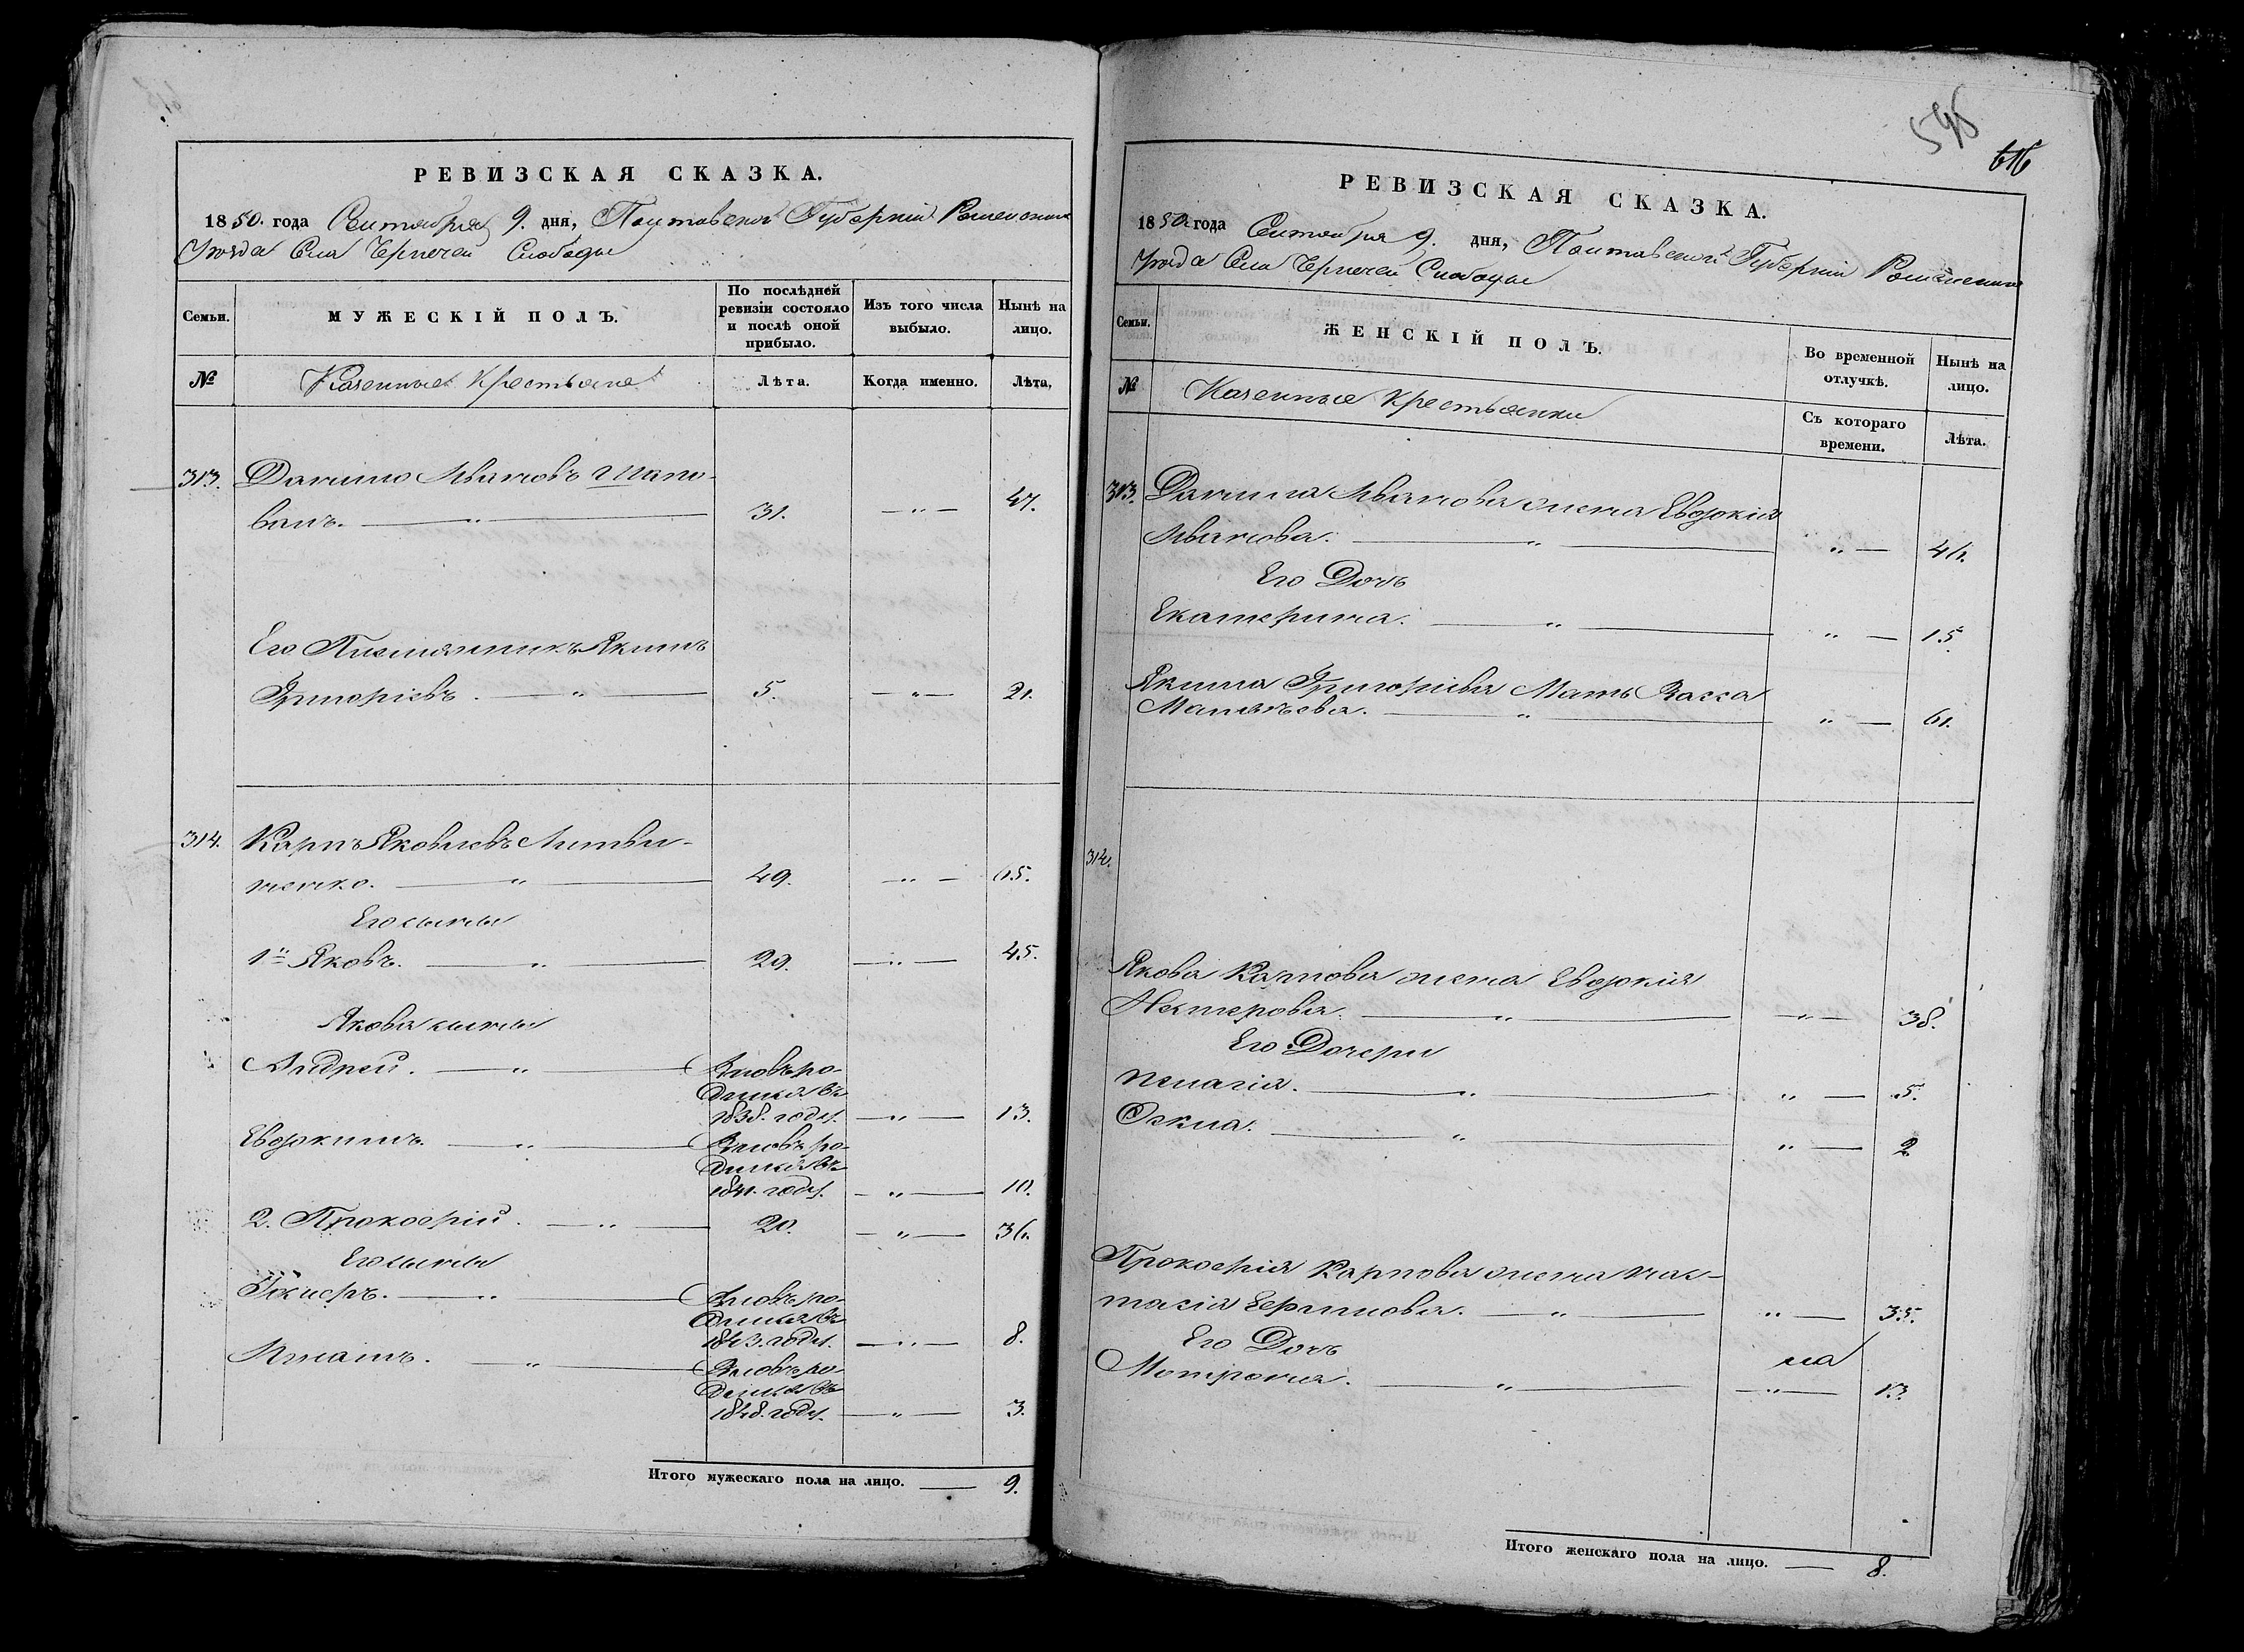 РЕВИЗСКАЯ СКАЗКА.
1850. года Сентября 9. дня, Полтавской Губерніи Роменского
Уезда Села Чернечей Слободы
Семьи.
МУЖЕСКІЙ ПОЛЪ.
По послѣдней ревизіи состояло и послѣ оной прибыло.
Изъ того числа выбыло.
Нынѣ на лицо.
№
Казенные Крестьяне
Лѣта.
Когда именно.
Лѣта,
313. Данило Ивановъ Шапо-
валъ. — „ — 31. — „ — 47.
Его Племянникъ Якимъ
Григоріевъ. — „ — 5. — „ — 21.
314. Карпъ Яковлевъ Литви-
ненко. — „ — 49. — „ — 65.
Его сыны
1й Яковъ. — „ — 29. — „ — 45.
Якова сыны
Андрей. — „ — Вновь ро-
дился въ
1838. году. — „ — 13.
Евдокимъ. — „ — Вновь ро-
дился въ
1841. году. — „ — 10.
2. Прокофій. — „ — 20. — „ — 36.
Его сыны
— „ — Вновь ро-
дился въ
1843. году. — „ — 8.
Игнатъ. — „ — Вновь ро-
дился въ
1848. году. — „ — 3.
Итого мужескаго пола на лицо. — 9.
595
616
РЕВИЗСКАЯ СКАЗКА.
1850 года Сентября 9. дня, Полтавской Губерніи Роменского
Уезда Села Чернечей Слободы
Семьи.
ЖЕНСКІЙ ПОЛЪ.
Во временной отлучкѣ.
Нынѣ на лицо.
№
Казенные Крестьянки
Съ котораго времени.
Лѣта.
313. Данила Иванова жена Евдокія
Иванова. — „ — „ — 46.
Его Дочь
Екатерина. — „ — „ — 15.
Якима Григоріева Мать Васса
Матвѣева. — „ — „ — 61.
314.
Якова Карпова жена Евдокія
Нестерова. — „ — „ — 38.
Его Дочери
Пелагія. — „ — „ — 5.
Фекла. — „ — „ — 2
Прокофія Карпова жена Нас-
тасія — „ — „ — 35.
Его Дочь
Мотрона. — „ — „ — 13
Итого женскаго пола на лицо. — 8.